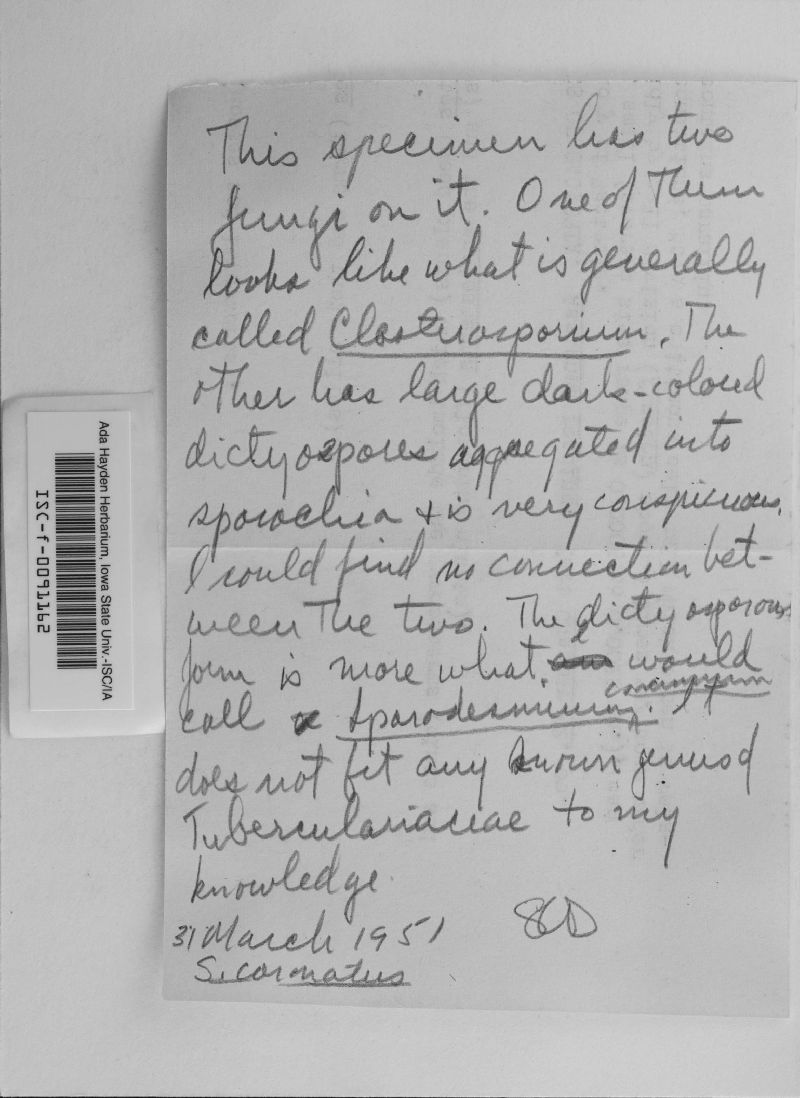 This specimen has two
fungi on it. One of Them
looks like what is generally
called Clasterosporium. The
other has large dark-colored
dictyospores aggregated into
sporochia & is very conspicuous.
I could find no connection bet-
ween The two. The dictyosporous
form is more what I would
call Sporodesmium. It
does not fit any known genus of
Tuberculariaceae to my
knowledge.
31 March 1951 SCD
S. coronatus
Ada Hayden Herbarium, Iowa State Univ.-ISC/IA
ISC-f-0091162